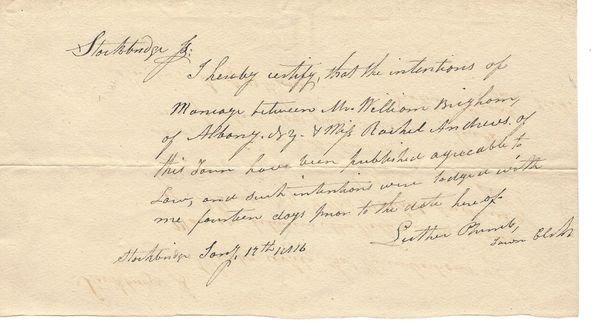 Stockbridge Js.
I hereby certify, that the intentions of
Marriage between Mr. William Brigham,
of Albany, N.Y. & Miss Rachel Andrews, of
this Town have been published agreeable to
Law, and such intentions were lodged with
me fourteen days prior to the date hereof.
Luther Plumb,
Town Clerk
Stockbridge Jany. 19th 1816